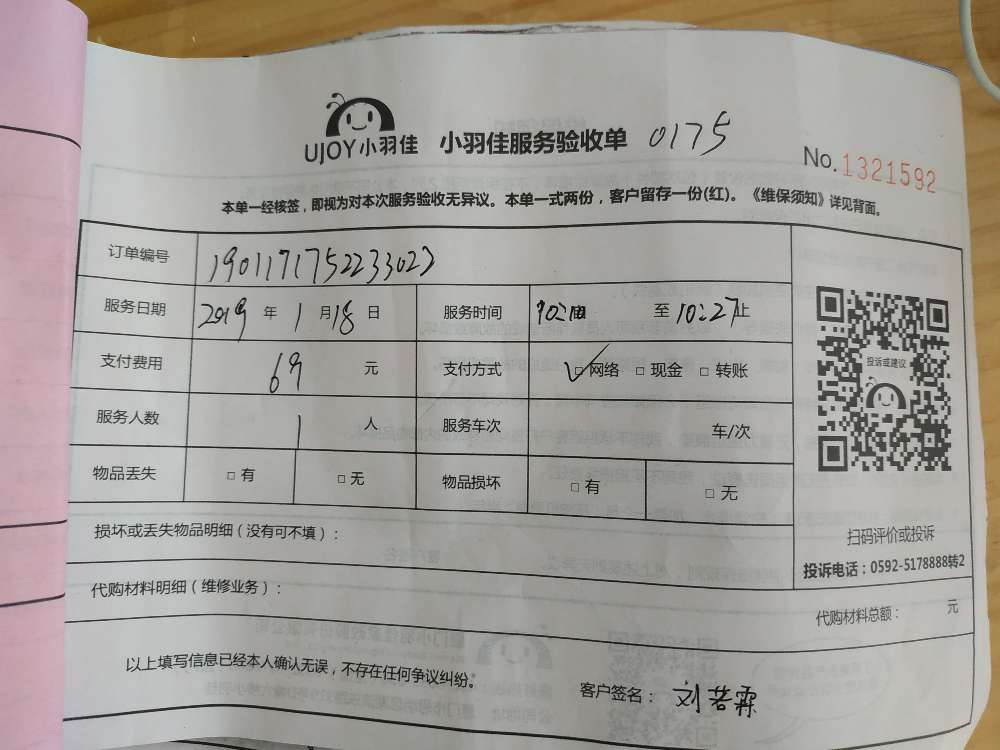 UJOY小羽佳 小羽佳服务验收单 0175
No.1321592
本单一经核签，即视为对本次服务验收无异议。本单一式两份，客户留存一份(红)。《维保须知》详见背面。
订单编号 1901171752233023
服务日期 2019 年 1 月 18 日 服务时间 至 10:27 止
支付费用 69 元 支付方式 ☑网络 □现金 □转账
服务人数 1 人 服务车次 车/次
物品丢失 □有 □无 物品损坏 □有 □无
投诉或建议
扫码评价或投诉
投诉电话：0592-5178888转2
损坏或丢失物品明细（没有可不填）：
代购材料明细（维修业务）：
代购材料总额： 元
以上填写信息已经本人确认无误，不存在任何争议纠纷。
客户签名： 刘若霖